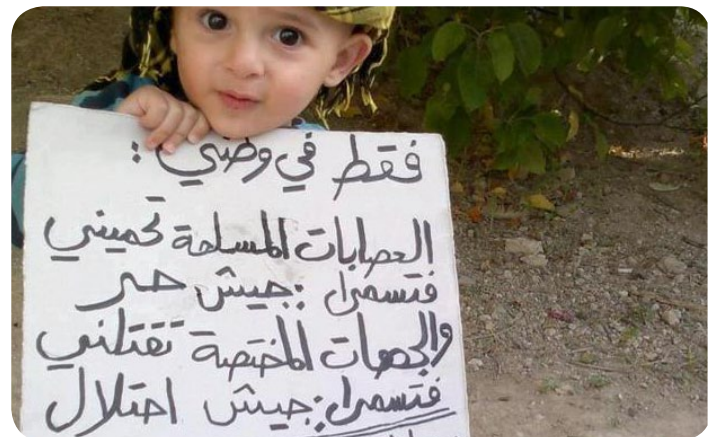 فقط في وطني :
العصابات المسلحة تحميني
فتسمى : جيش حر
والجهات المختصة تقتلني
فتسمى : جيش احتلال